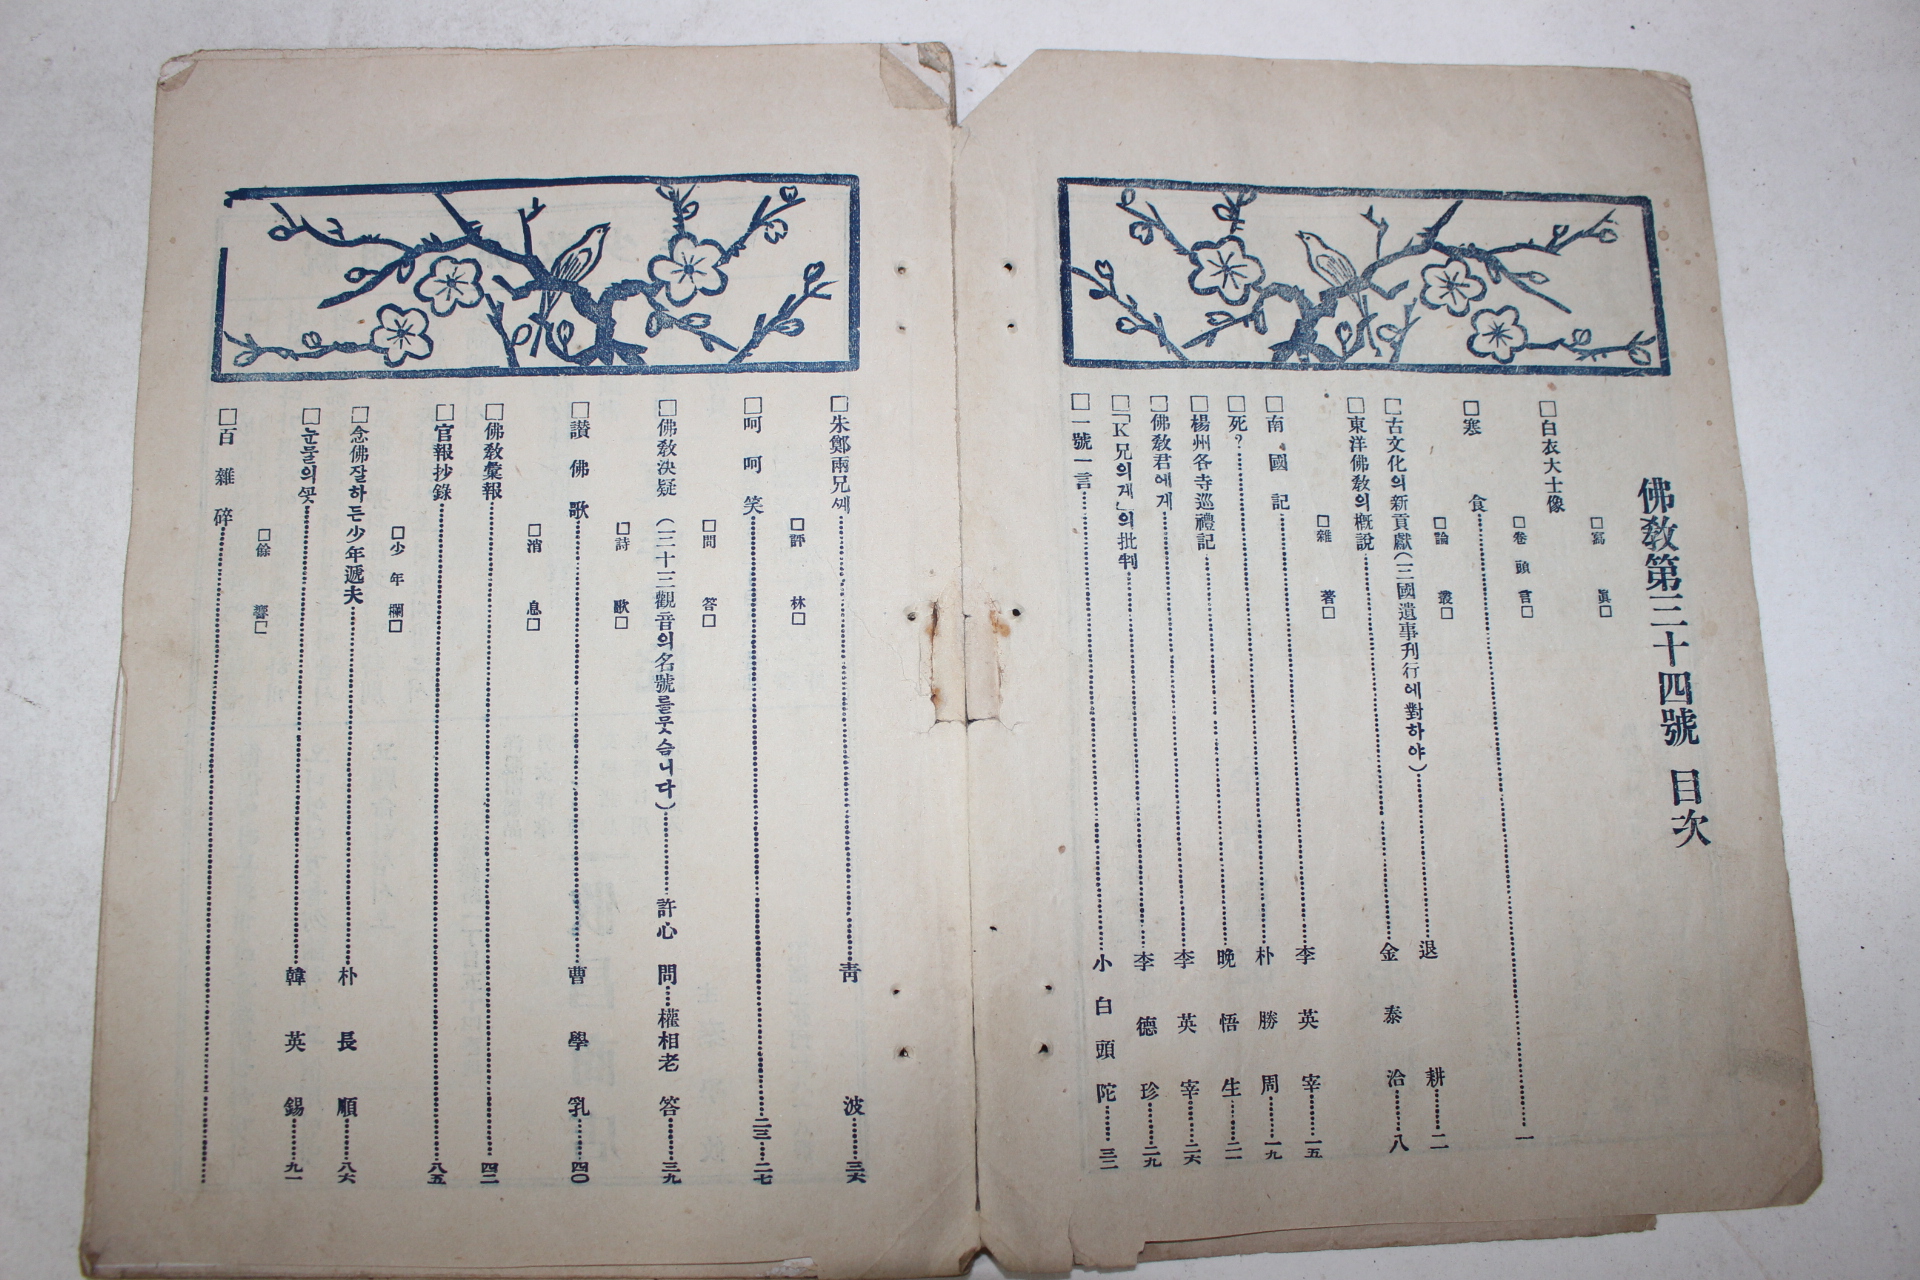 佛敎第三十四號 目次
□寫眞□
□白衣大士像
□卷頭言□
□寒食…一
□論叢□
□古文化의新貢獻(三國遺事刊行에對하야)…退耕…二
□東洋佛敎의槪說…金泰洽…八
□雜著□
□南國記…李英宰…一五
□死?…朴勝周…一九
□楊州各寺巡禮記…晚悟生…二一
□佛敎君에게…李英宰…二六
□「K兄의게」의批判…李德珍…二九
□一號一言…小白頭陀…三二
□朱鄭兩兄께…靑波…三六
□評林□
□呵呵笑…二三…二七
□問答□
□佛敎決疑(三十三觀音의名號를뭇슴니다)…許心問…權相老答…三九
□詩歌□
□讚佛歌…曹學乳…四〇
□消息□
□佛敎彙報…四二
□官報抄錄…八五
□少年欄□
□念佛잘하든少年遞夫…朴長順…八六
□눈물의꼿…韓英錫…九一
□餘響□
□百雜碎…